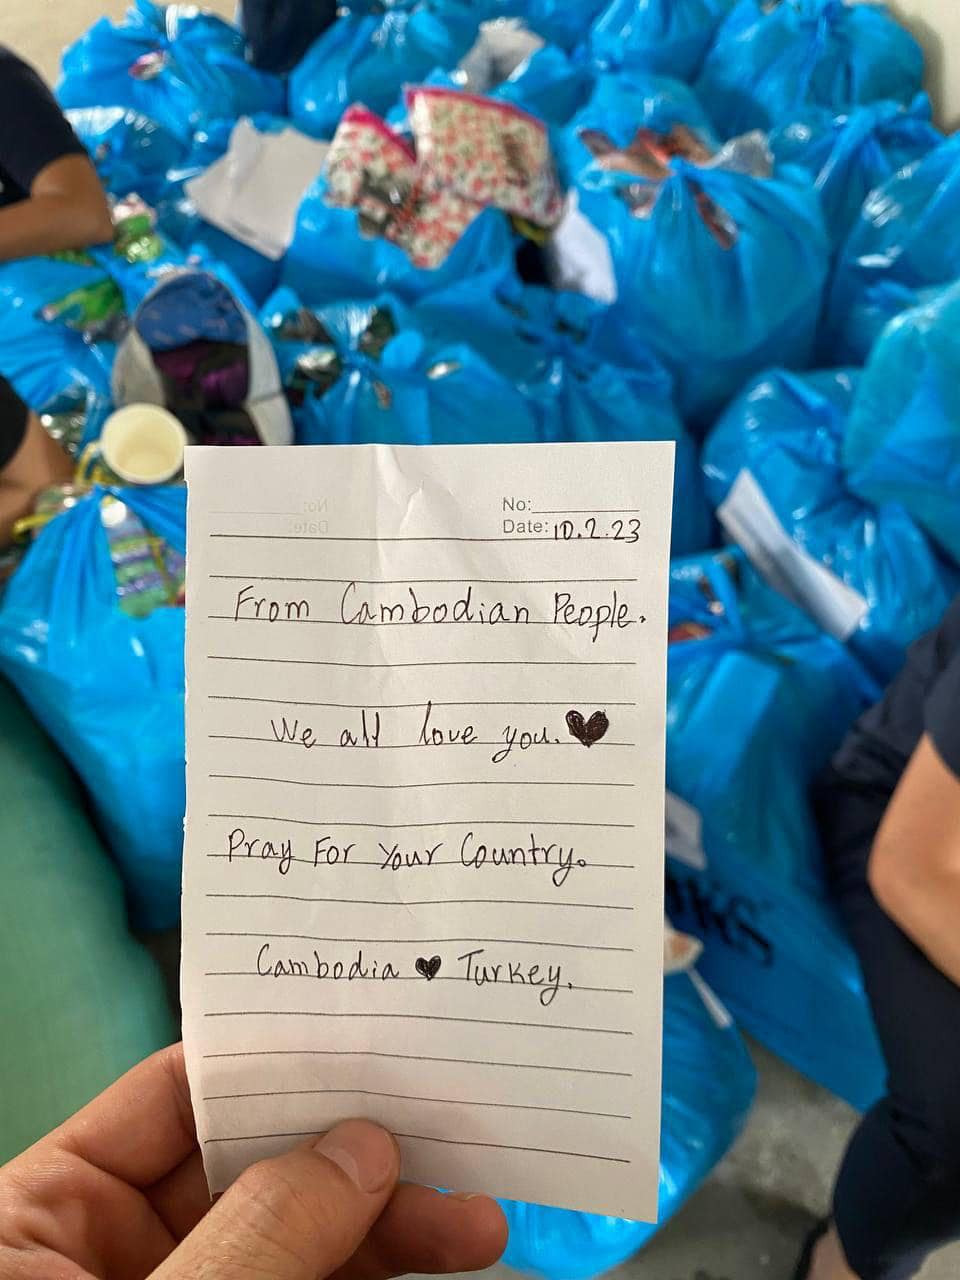 No:
Date: 10.2.23
From Cambodian People.
We all love you. ♥
Pray For Your Country.
Cambodia ♥ Turkey.